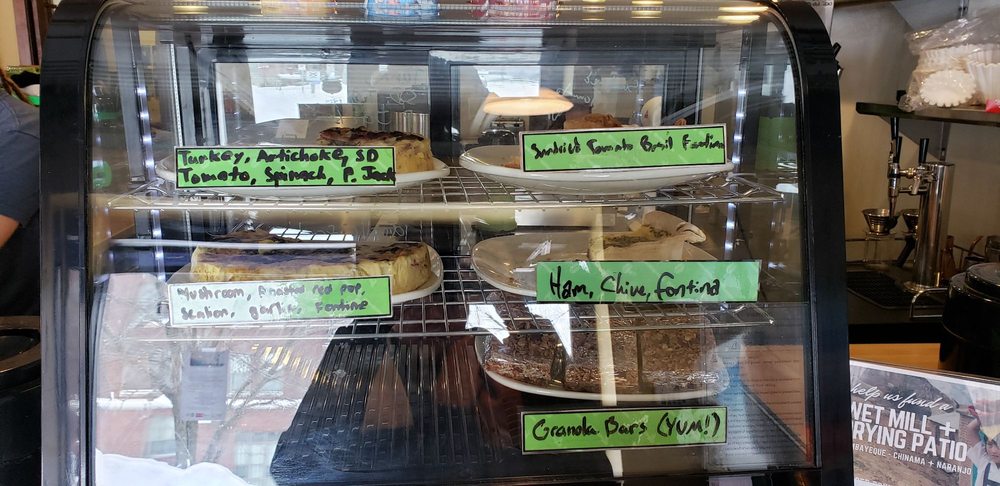 Turkey, Artichoke, SD
Tomato, Spinach, P. Jack
Sundried Tomato Basil Fontina
Mushroom, Roasted red pep,
Scallion, garlic, Fontine
Ham, Chive, fontina
Granola Bars (YUM!)
help us fund a
WET MILL +
RYING PATIO
MBAYEQUE - CHINAMA + NARANJO